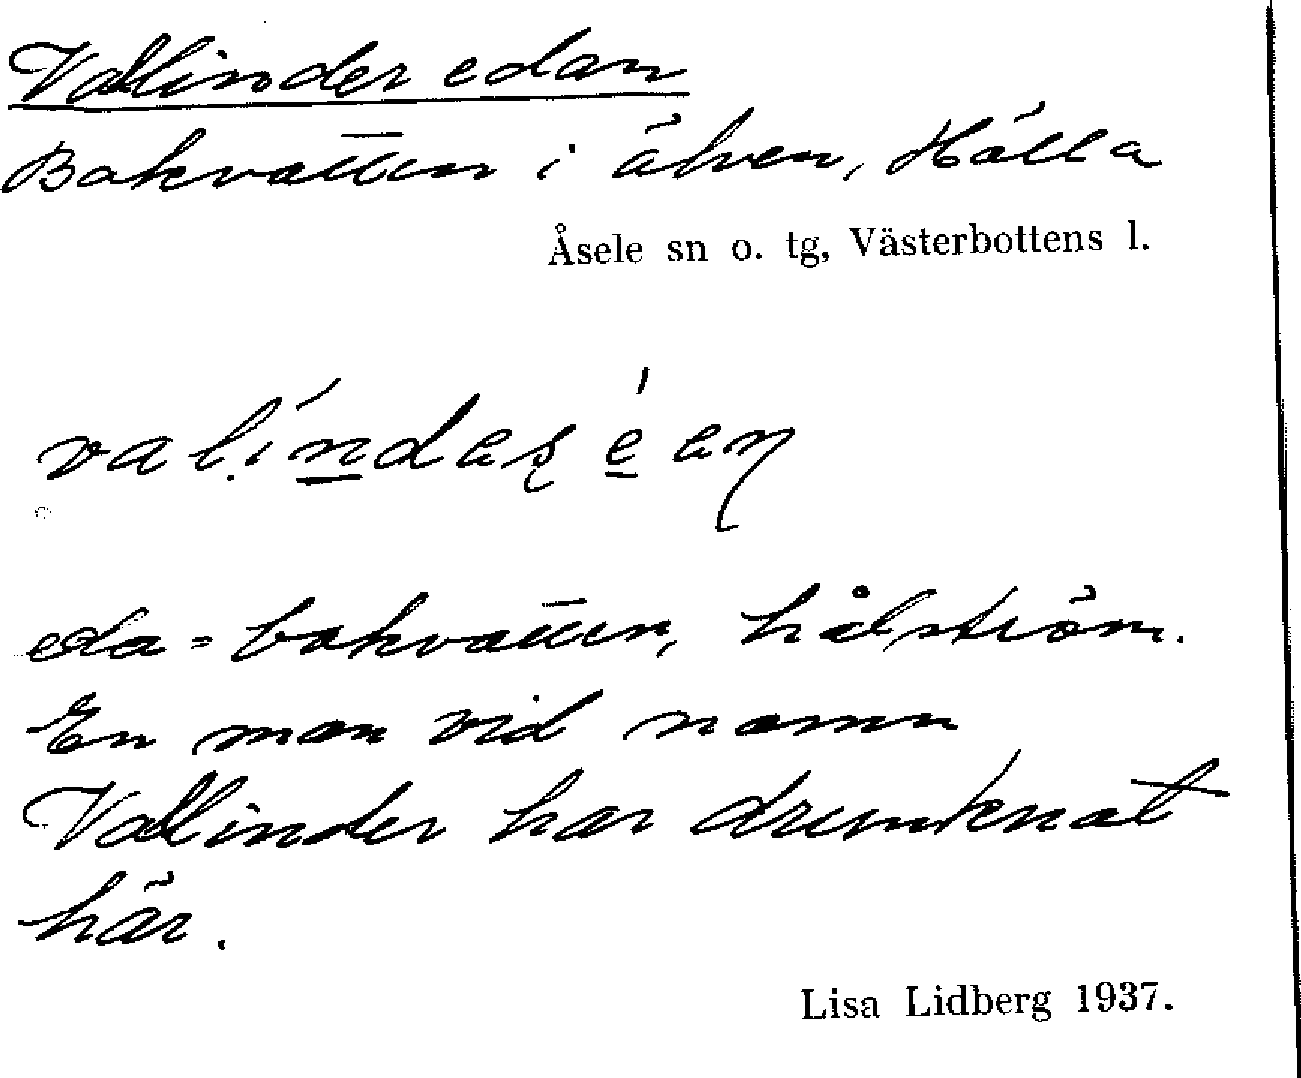 Vallinder edan
Bakvatten i älven, Hälla
Åsele sn o. tg, Västerbottens l.
eda = bakvatten, hålström.
En man vid namn
Vallinder har drunknat
här.
Lisa Lidberg 1937.